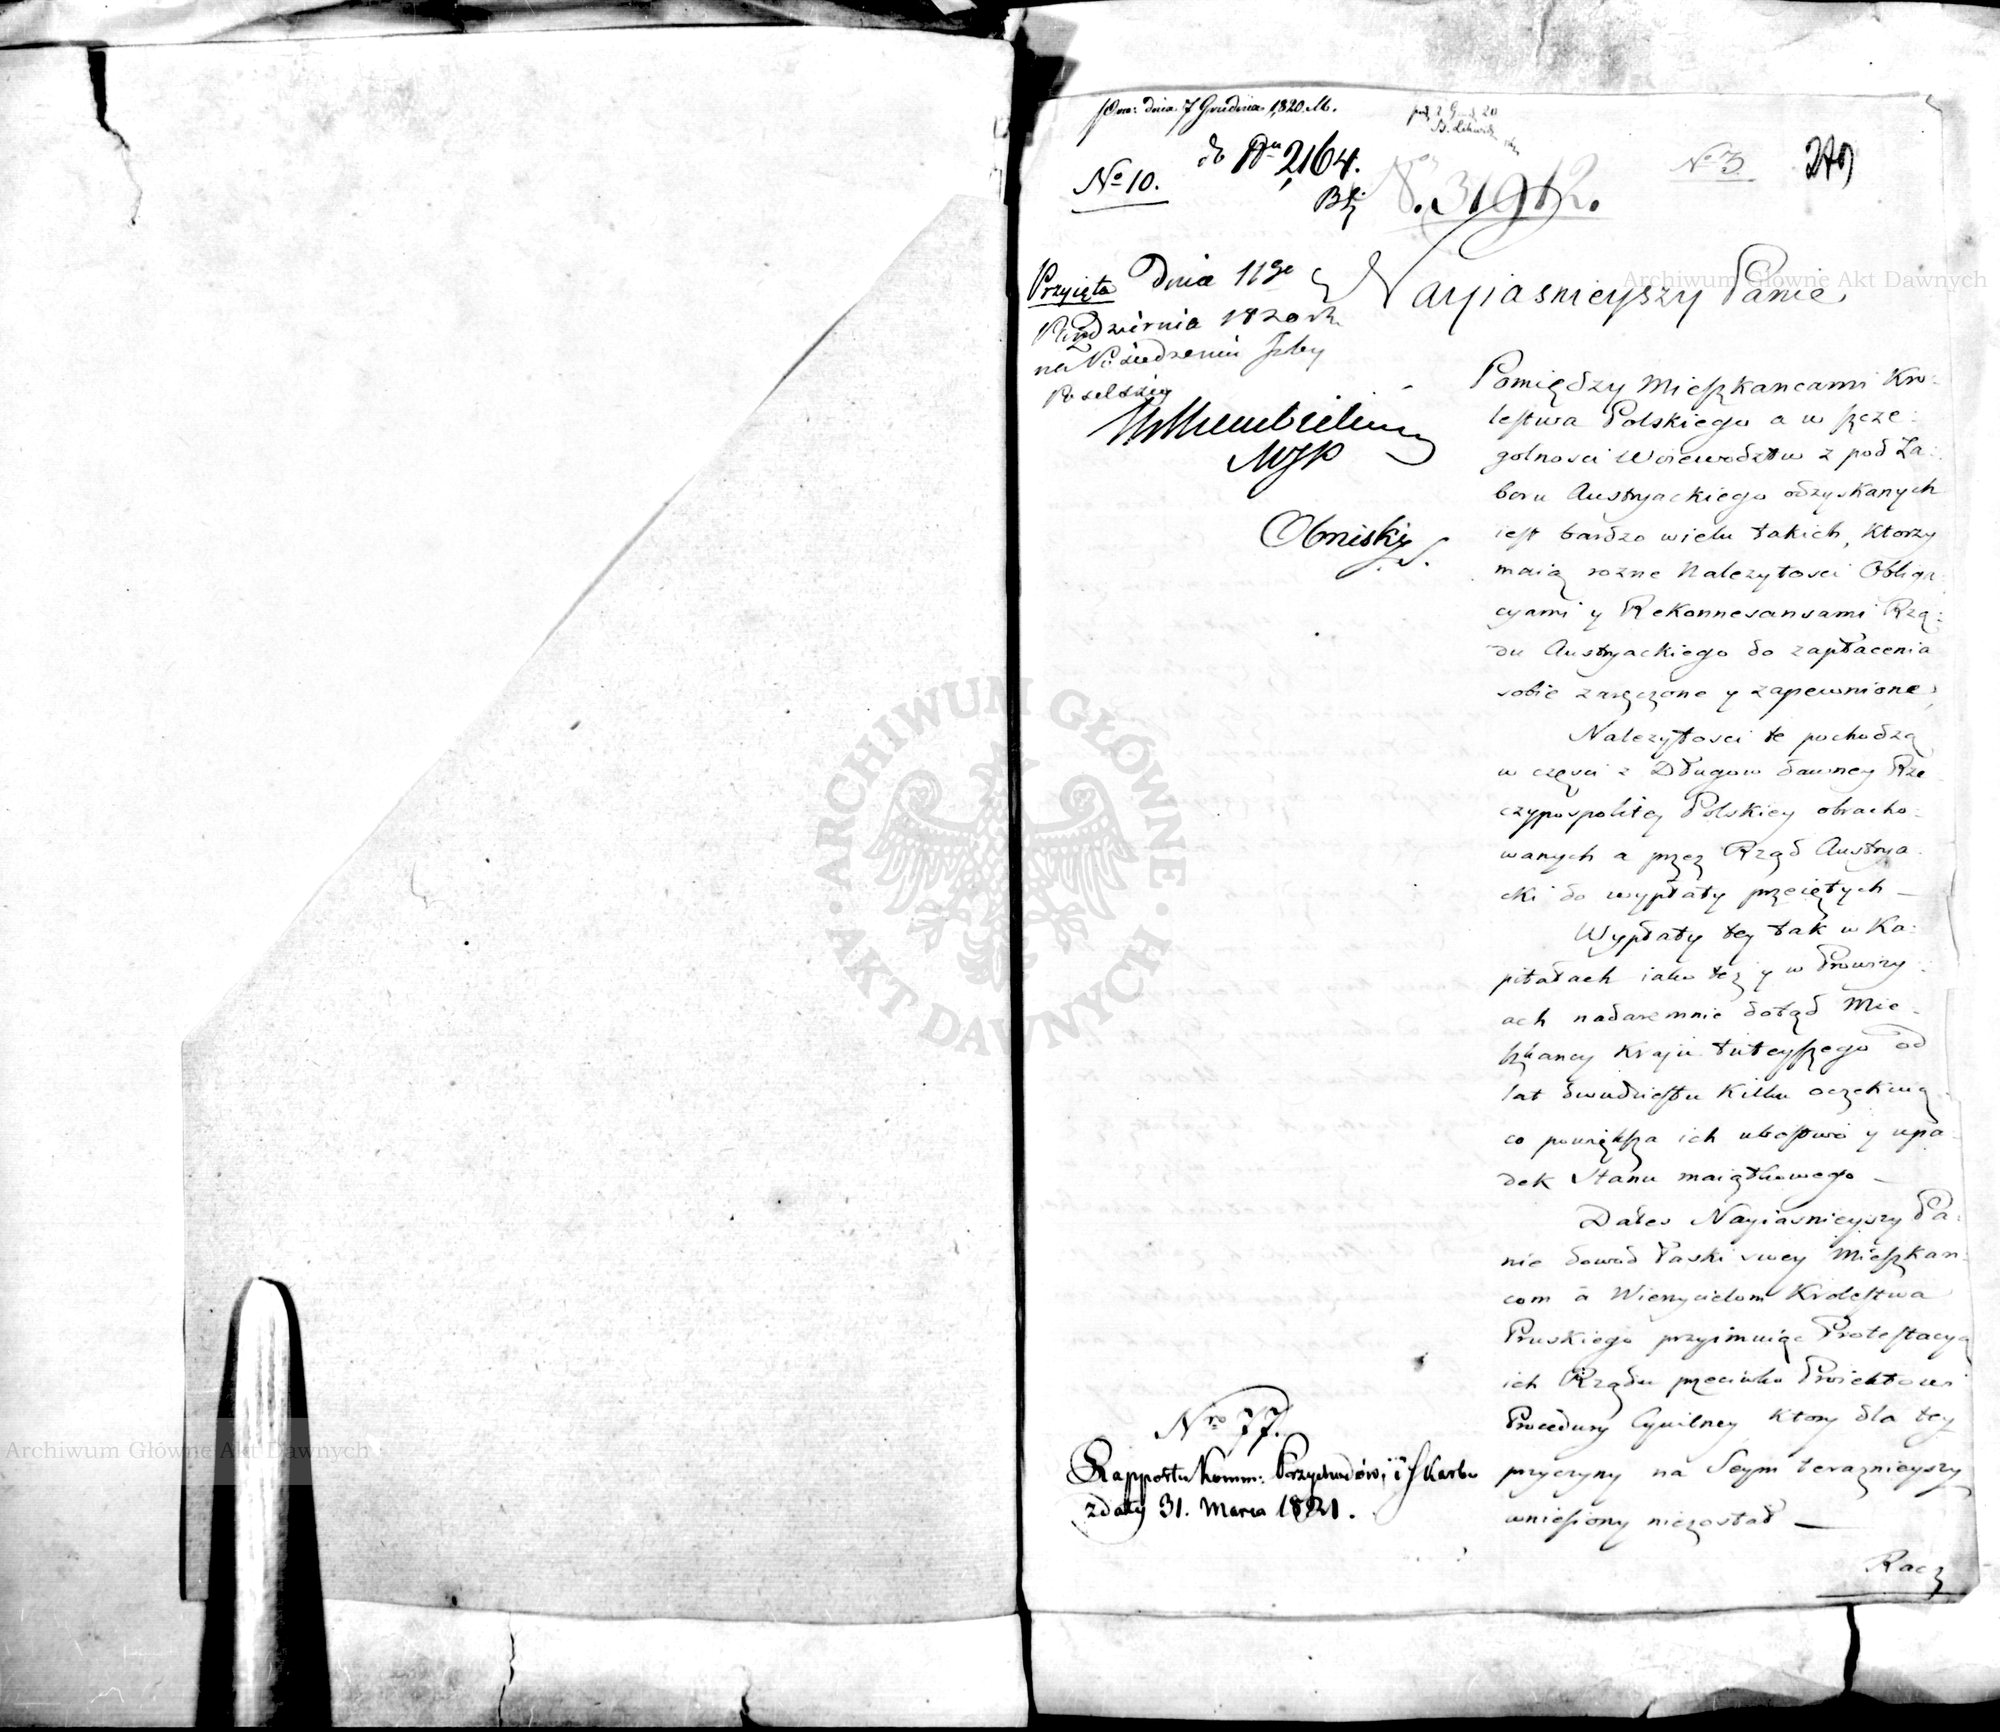 dnia 7 Grudnia 1820
do Nru 2,164.
No 10.
No 3
Nayiasnieyszy Panie,
Przyięta Dnia 11go
Pazdziernia 1820 rk.
na Posiedzeniu Izby
Poselskiey
MJP
Obniski
S.
Pomiędzy Mieszkancami Kro:
lestwa Polskiego a w szcze:
golnosci Woiewodztw z pod Za:
boru Austryackiego odzyskanych
iest bardzo wielu takich, ktorzy
maią rozne Należytosci Obliga:
cyami y Rekonnesansami Rzą:
du Austryackiego do zapłacenia
sobie zaręczone y zapewnione,
Należytosci te pochodzą
w częsci z Długow dawney Rze
czypospolitey Polskiey obracho:
wanych a przez Rząd Austrya
cki do wypłaty przeiętych —
Wypłaty tey tak w Ka:
pitałach iako też y w Prowizy:
ach nadaremnie dotąd Mie-
szkancy Kraju tuteyszego od
lat dwudziestu kilku oczekuią
co powiększa ich ubostwo y upa-
dek Stanu maiątkowego —
Dałes Nayiasnieyszy Pa:
nie dowod Łaski swey Mieszkan:
com a Wierzycielom Krolestwa
Pruskiego przyimuiąc Protestacyą
ich Rządu przeciwko Proiektowi
Procedury Cywilney ktory dla tey
przyczyny na Seym terazniejszy
wniesiony niezostał —
Racz
Nro 77.
Rapportu Komm: Przychodów i Skarbu
z daty 31. Marca 1821.
Archiwum Główne Akt Dawnych
ARCHIWUM GŁÓWNE · AKT DAWNYCH ·
Archiwum Główne Akt Dawnych